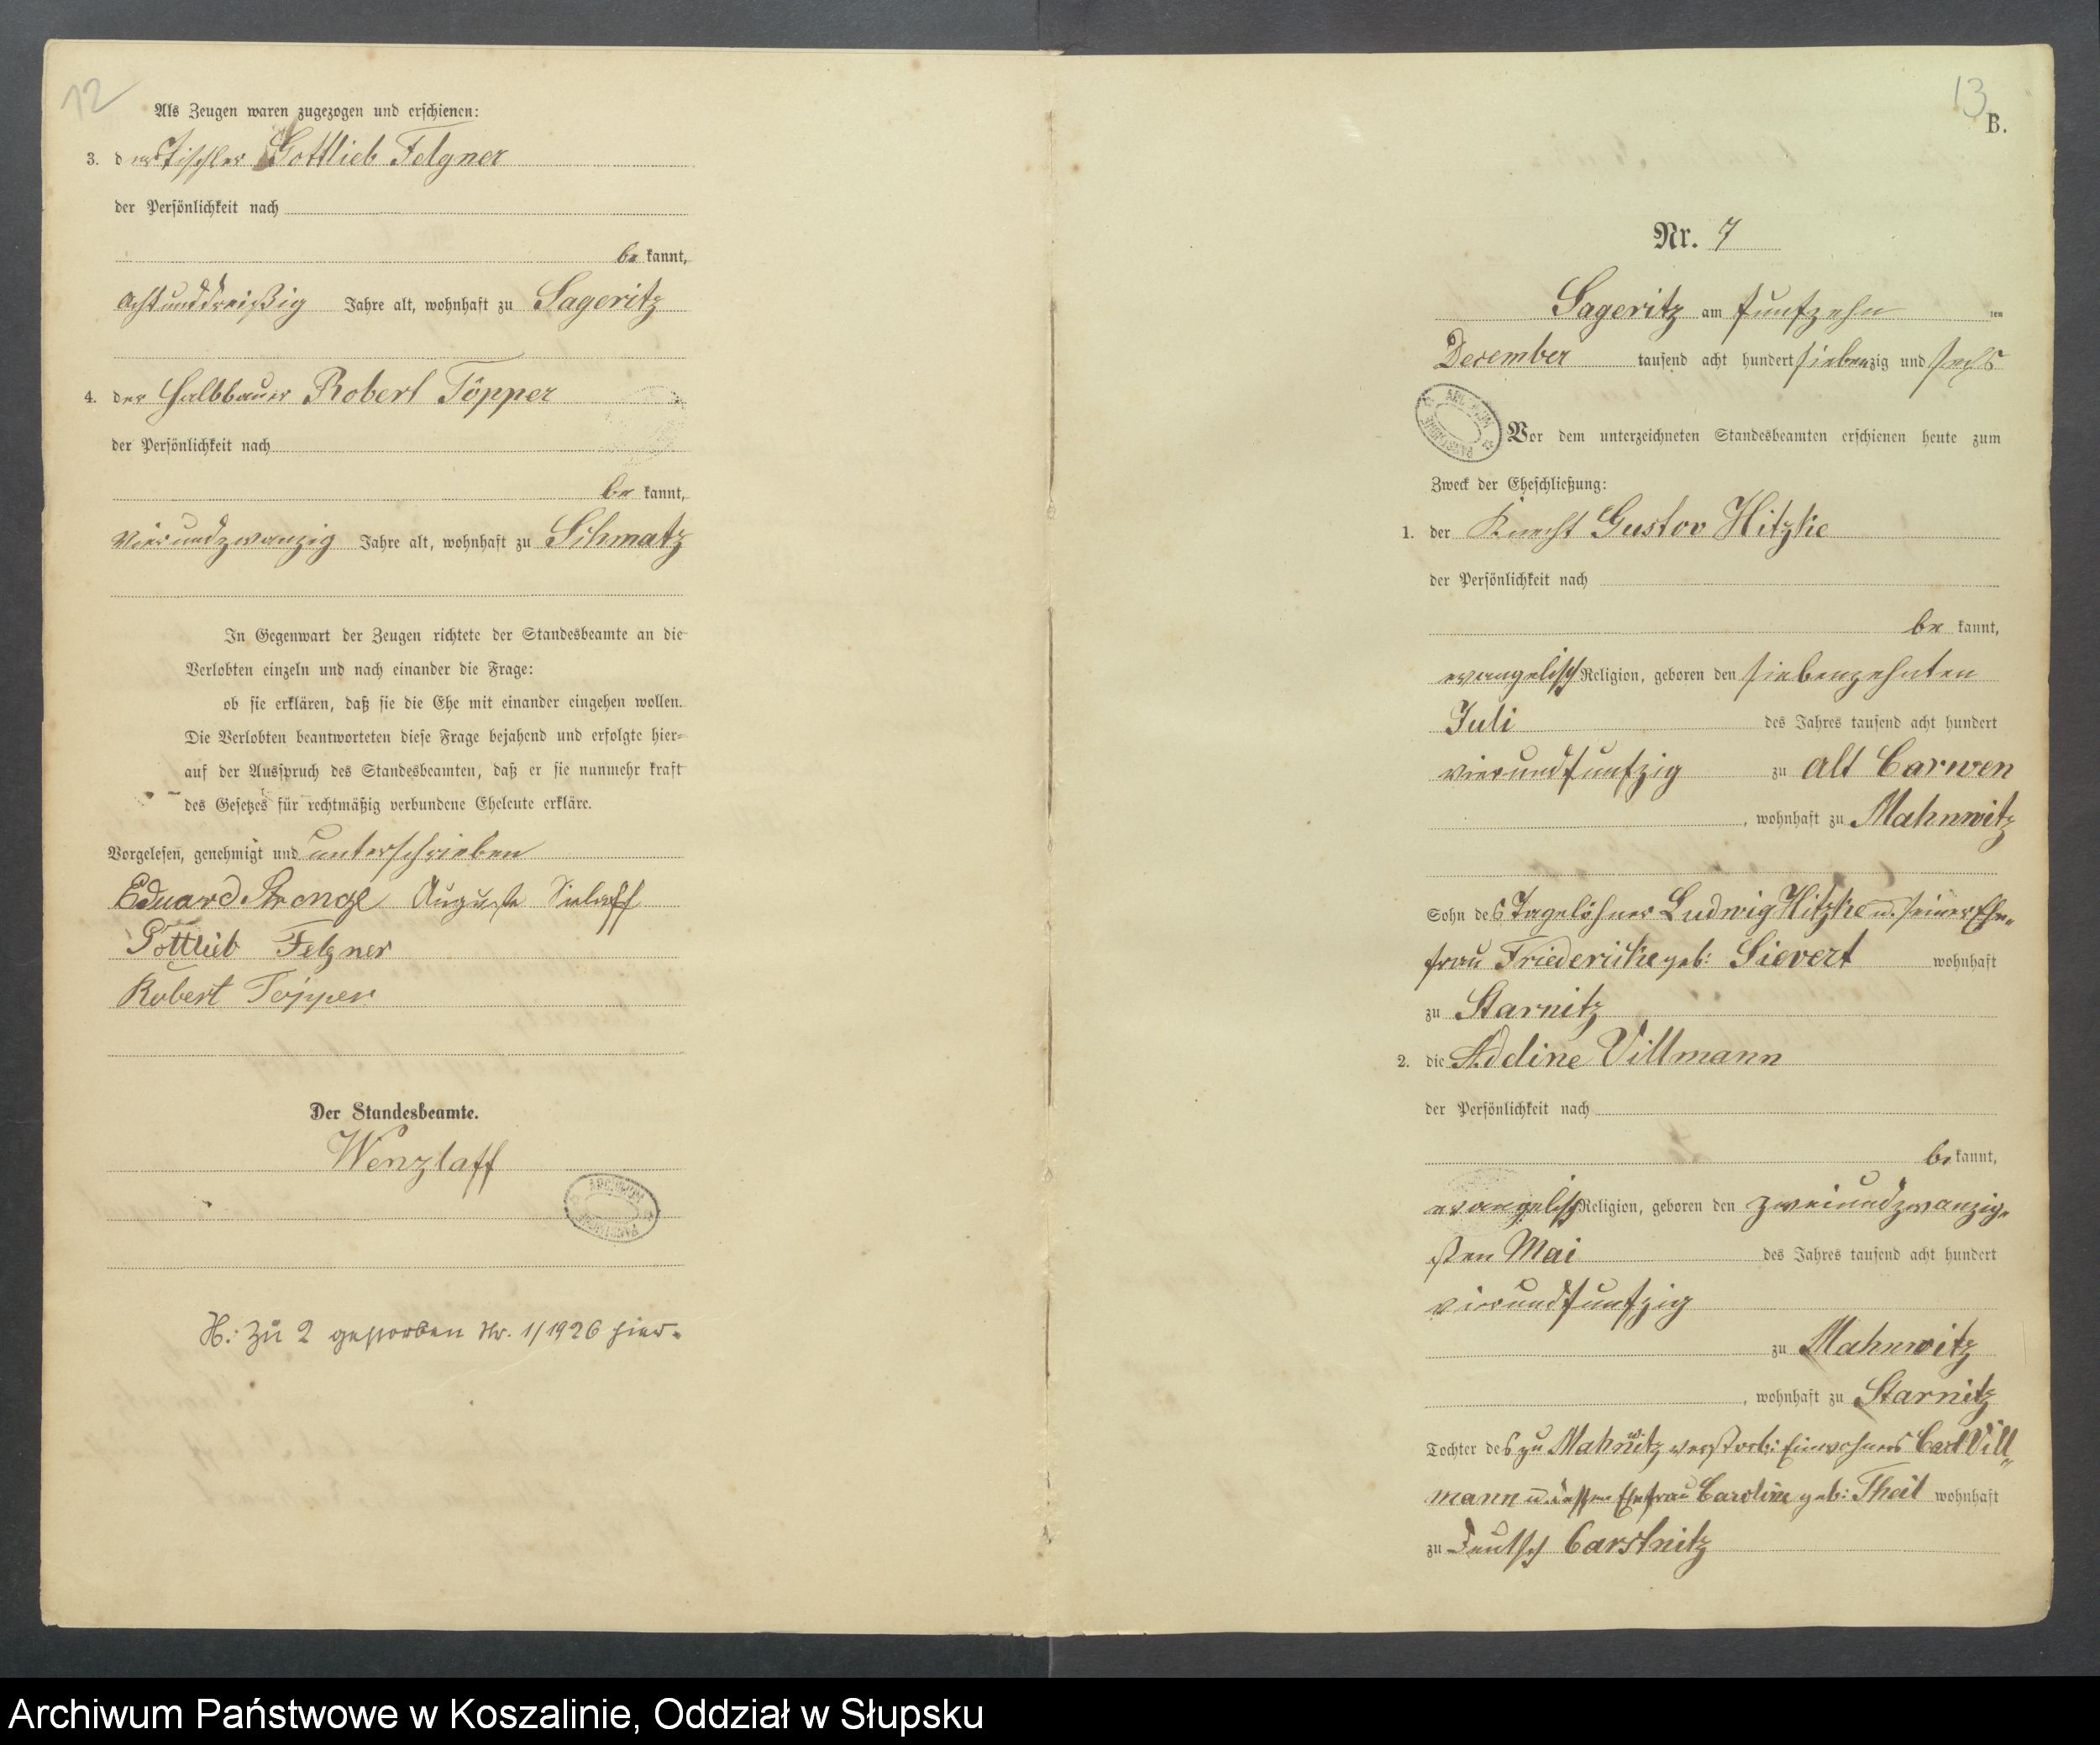 12
Als Zeugen waren zugezogen und erschienen:
3. der Tischler Gottlieb Felgner
der Persönlichkeit nach
be kannt,
achtunddreißig Jahre alt, wohnhaft zu Sageritz
4. der Halbbauer Robert Töpper
der Persönlichkeit nach
be kannt,
vierundzwanzig Jahre alt, wohnhaft zu Schmatz
In Gegenwart der Zeugen richtete der Standesbeamte an die
Verlobten einzeln und nach einander die Frage:
ob sie erklären, daß sie die Ehe mit einander eingehen wollen.
Die Verlobten beantworteten diese Frage bejahend und erfolgte hier-
auf der Ausspruch des Standesbeamten, daß er sie nunmehr kraft
des Gesetzes für rechtmäßig verbundene Eheleute erkläre.
Vorgelesen, genehmigt und unterschrieben
Eduard Auguste
Gottlieb Felgner
Robert Töpper
Der Standesbeamte.
Wenzlaff
H: Zu 2 gestorben Nr. 1/1926 hier.
13
B.
Nr. 7
Sageritz am funfzehn ten
December tausend acht hundert siebenzig und sechs
Vor dem unterzeichneten Standesbeamten erschienen heute zum
Zweck der Eheschließung:
1. der Knecht Gustav Hitzke
der Persönlichkeit nach
be kannt,
evangelisch Religion, geboren den siebenzehnten
Juli des Jahres tausend acht hundert
vierundfunfzig zu Alt Carwen
, wohnhaft zu Mahnwitz
Sohn des Tagelöhner Ludwig Hitzke u. seiner Ehe-
frau Friederike geb: Sievert wohnhaft
zu Starnitz
2. die Adeline Villmann
der Persönlichkeit nach
be kannt,
evangelisch Religion, geboren den zweiundzwanzig-
sten Mai des Jahres tausend acht hundert
vierundfunfzig
zu Mahnwitz
, wohnhaft zu Starnitz
Tochter des zu Mahnwitz verstorb: Einwohners Carl Vill-
mann u. dessen Ehefrau Caroline geb: Theil wohnhaft
zu Deutsch Carstnitz
Archiwum Państwowe w Koszalinie, Oddział w Słupsku